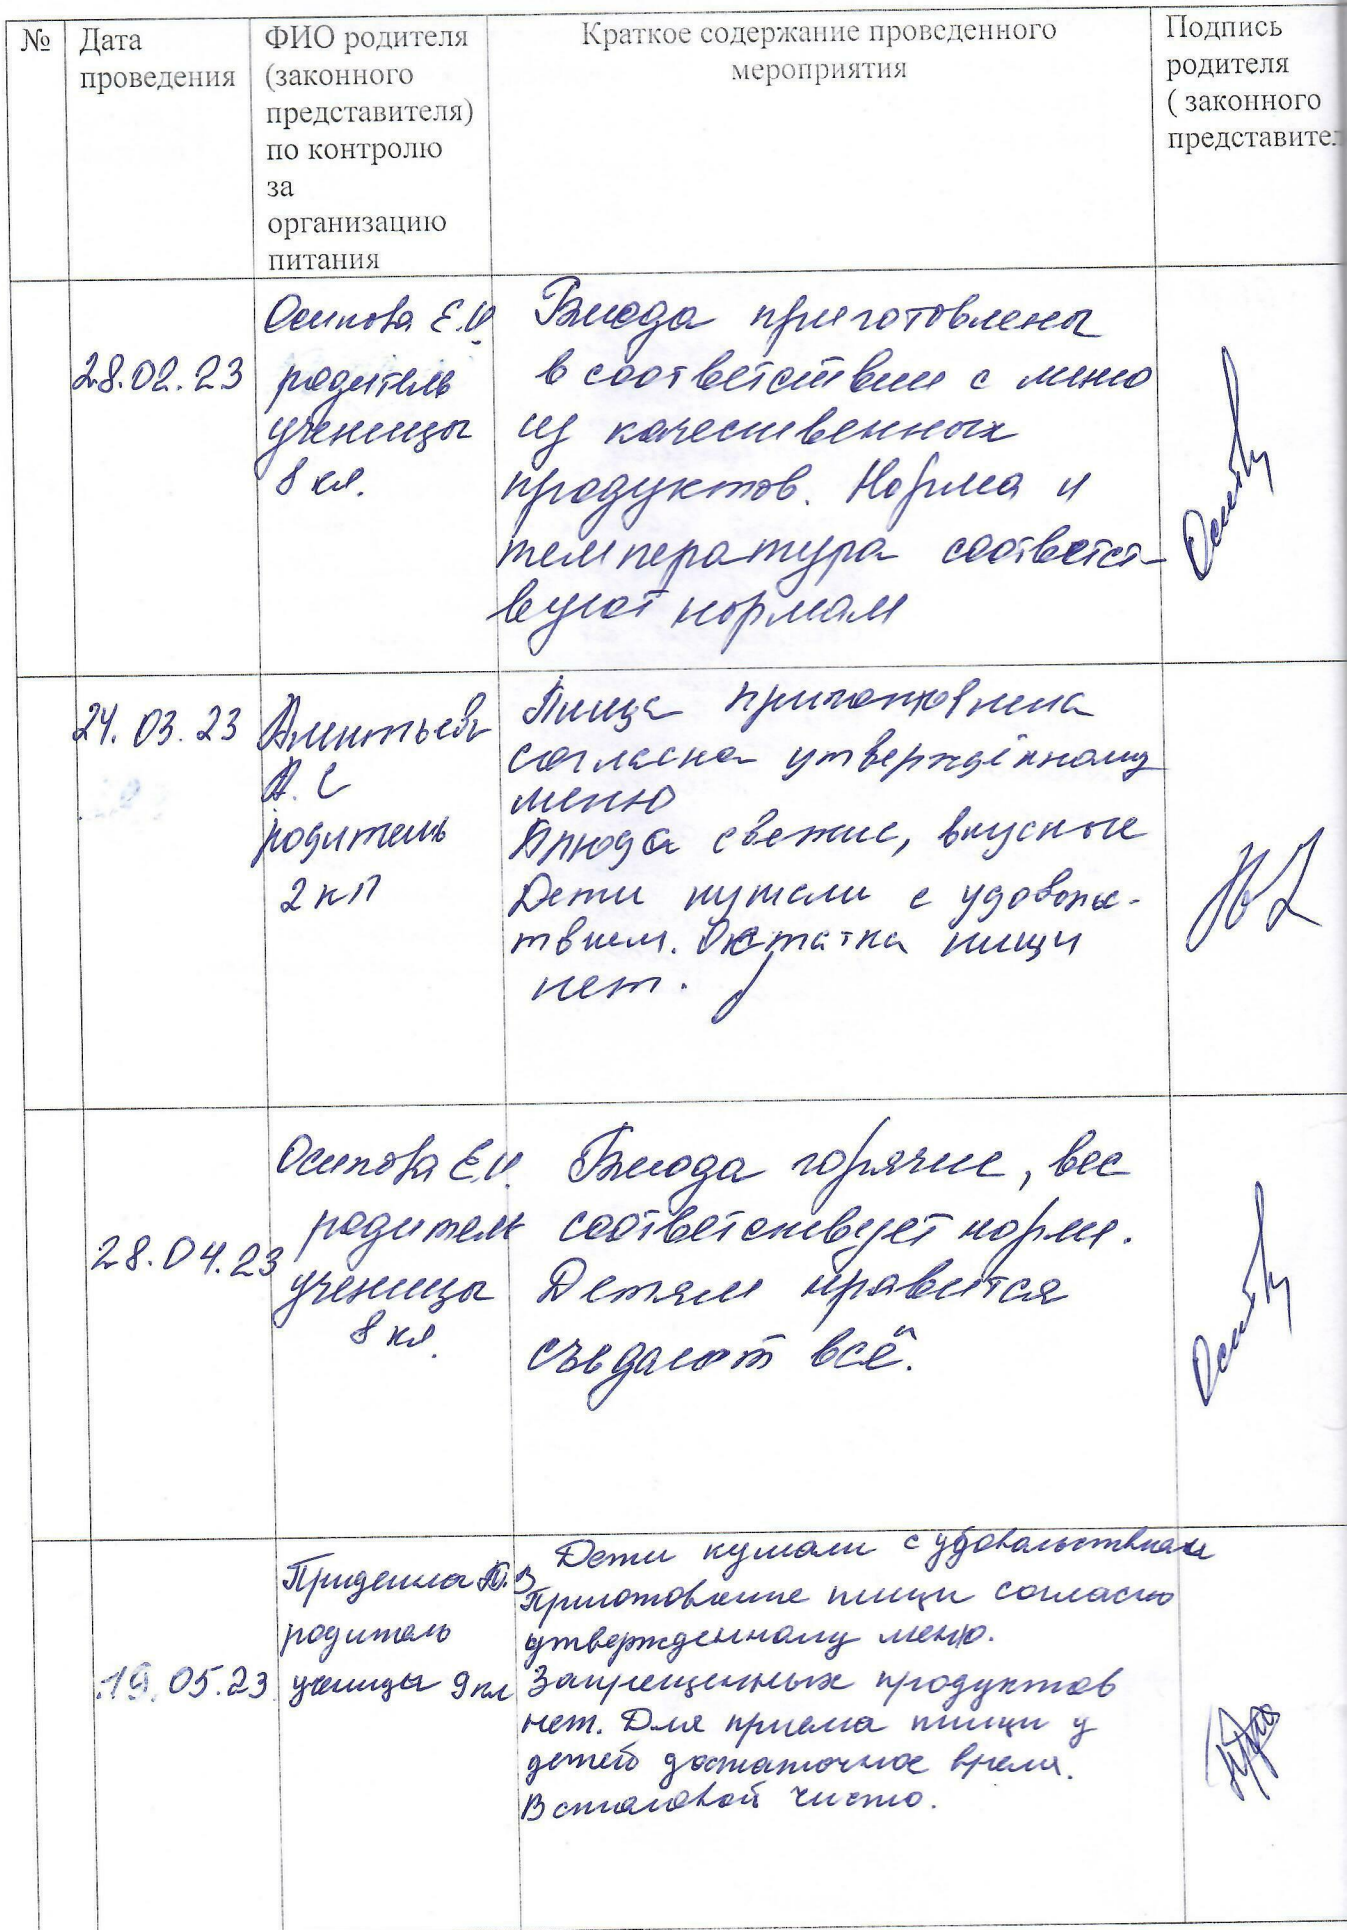 №
Дата
проведения
ФИО родителя
(законного
представителя)
по контролю
за
организацию
питания
Краткое содержание проведенного
мероприятия
Подпись
родителя
( законного
представител
28.02.23
Осипова Е.И.
родитель
ученицы
8 кл.
Блюда приготовлены
в соответствии с меню
из качественных
продуктов. Норма и
температура соответст-
вуют нормам
24.03.23
А. С
родитель
2 кл
Пища приготовлена
согласно утверждённому
меню
Блюда свежие, вкусные
Дети кушали с удоволь-
ствием. Остатка пищи
нет.
28.04.23
Осипова Е.И.
родитель
ученицы
8 кл.
Блюда горячие, вес
соответствует норме.
Детям нравится
съедают всё.
19.05.23
родитель
ученицы 9 кл
Дети кушали с удовольствием
Приготовление пищи согласно
утвержденному меню.
Запрещенных продуктов
нет. Для приема пищи у
детей достаточное время.
В столовой чисто.